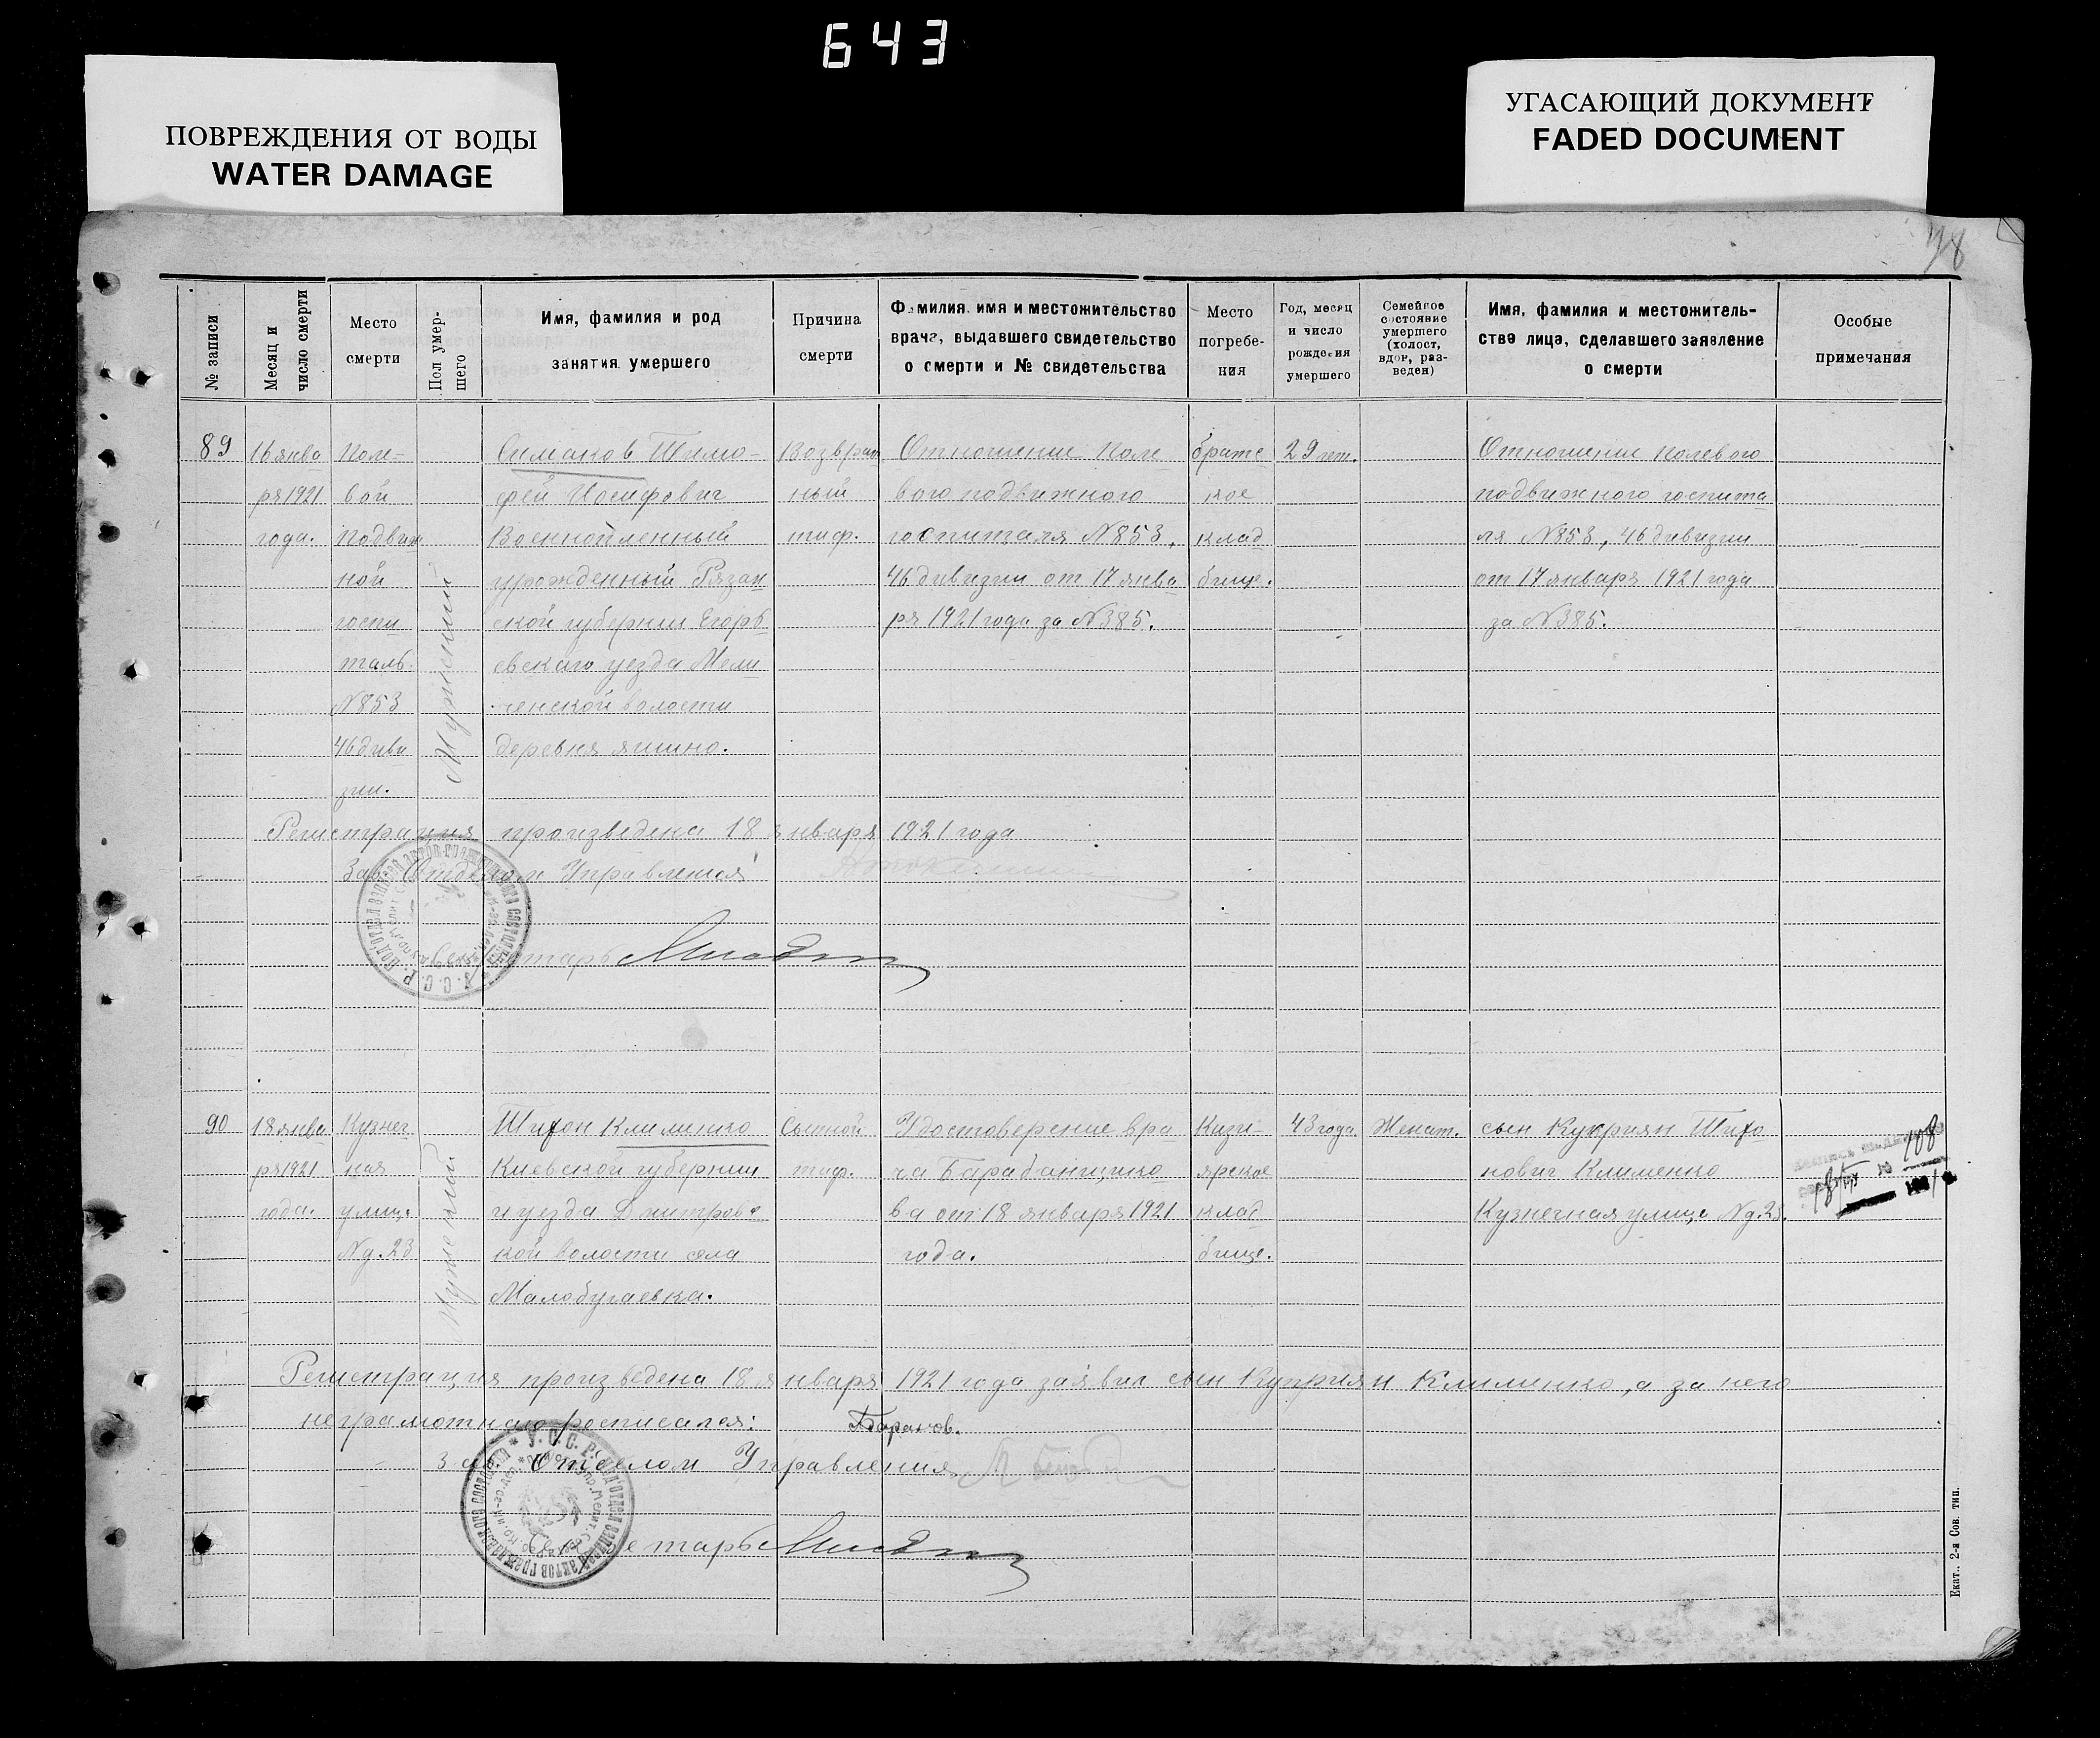 643
ПОВРЕЖДЕНИЯ ОТ ВОДЫ
WATER DAMAGE
УГАСАЮЩИЙ ДОКУМЕНТ
FADED DOCUMENT
78
№ записи
Месяц и число смерти
Место смерти
Пол умер-
шего
Имя, фамилия и род
занятия умершего
Причина
смерти
Фамилия, имя и местожительство
врача, выдавшего свидетельство
о смерти и № свидетельства
Место
погребе-
ния
Год, месяц
и число
рождения
умершего
Семейное
состояние
умершего
(холост,
вдов, раз-
веден)
Имя, фамилия и местожитель-
ство лица, сделавшего заявление
о смерти
Особые
примечания
89
16 янва
ря 1921
года.
Поле-
вой
подвиж
ной
госпи
таль
N 853
46 диви
зии.
Мужеский
Симаков Тимо-
фей Иосифович
Военнопленный
урожденный Рязан
ской губернии Егорь
евскаго уезда Мели
ченской волости
деревня Яшино.
Возврат
ный
тиф.
Отношение Поле
вого подвижного
госпиталя N 853,
46 дивизии от 17 янва
ря 1921 года за N 385.
братс
кое
клад
бище.
29 лет.
Отношение полевого
подвижного госпита
ля N 853, 46 дивизии
от 17 января 1921 года
за N 385.
Регистрация произведена 18 января 1921 года
Зав. Отделом Управления
90
18 янва
ря 1921
года.
Кузнеч
ная
улица
N д. 23
Мужеский
Тихон Клименко
Киевской губернии
и уезда Дмитровс
кой волости села
Малобугаевка.
Сыпной
тиф.
Удостоверение вра
ча Барабанщико
ва от 18 января 1921
года.
Кизи-
ярское
клад
бище.
43 года.
Женат.
сын Куприян Тихо
нович Клименко
Кузнечная улица N д. 23.
108
Регистрация произведена 18 января 1921 года заявил сын Куприян Клименко, а за него
неграмотнаго росписался: Баранов.
Зав. Отделом Управления
Екат., 2-я Сов. тип.